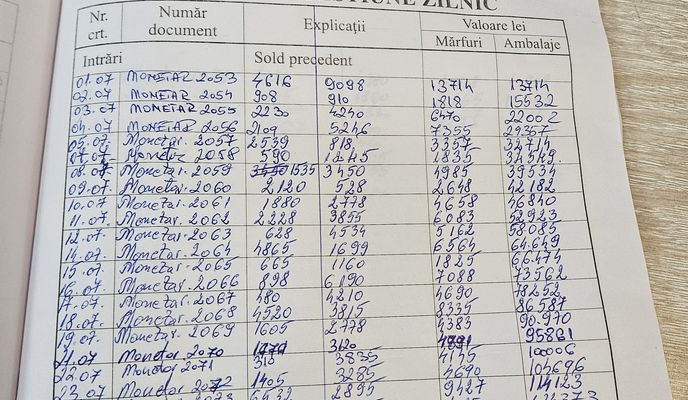 STIUNE ZILNIC
Nr. crt. Număr document Explicații Valoare lei
Mărfuri Ambalaje
Intrări Sold precedent
01.07 MONETAR 2053 4616 9098 13714 13714
02.07 MONETAR 2054 908 910 1818 15532
03.07 MONETAR 2055 2230 4240 6470 22002
04.07 MONETAR 2056 2109 5246 7355 29357
05.07 Monetar 2057 2539 818 3357 32714
07.07 Monetar 2058 590 1245 1835 34549
08.07 Monetar 2059 3450 1535 3450 4985 39534
09.07 Monetar 2060 2120 528 2648 42182
10.07 Monetar. 2061 1880 2778 4658 46840
11.07 Monetar. 2062 2228 3855 6083 52923
12.07 Monetar. 2063 628 4534 5162 58.085
14.07 Monetar. 2064 4865 1699 6564 64.649
15.07 Monetar. 2065 665 1160 1825 66.474
16.07 Monetar. 2066 898 6190 7088 73562
17.07 Monetar. 2067 480 4210 4690 78252
18.07 Monetar. 2068 4520 3815 8335 86.587
19.07 Monetar. 2069 1605 2778 4383 90.970
21.07 Monetar 2070 3120 95861
22.07 Monetar 2071 310 3835 4145 10006
23.07 Monetar 2072 1405 3285 4690 104696
2895 9427 114123